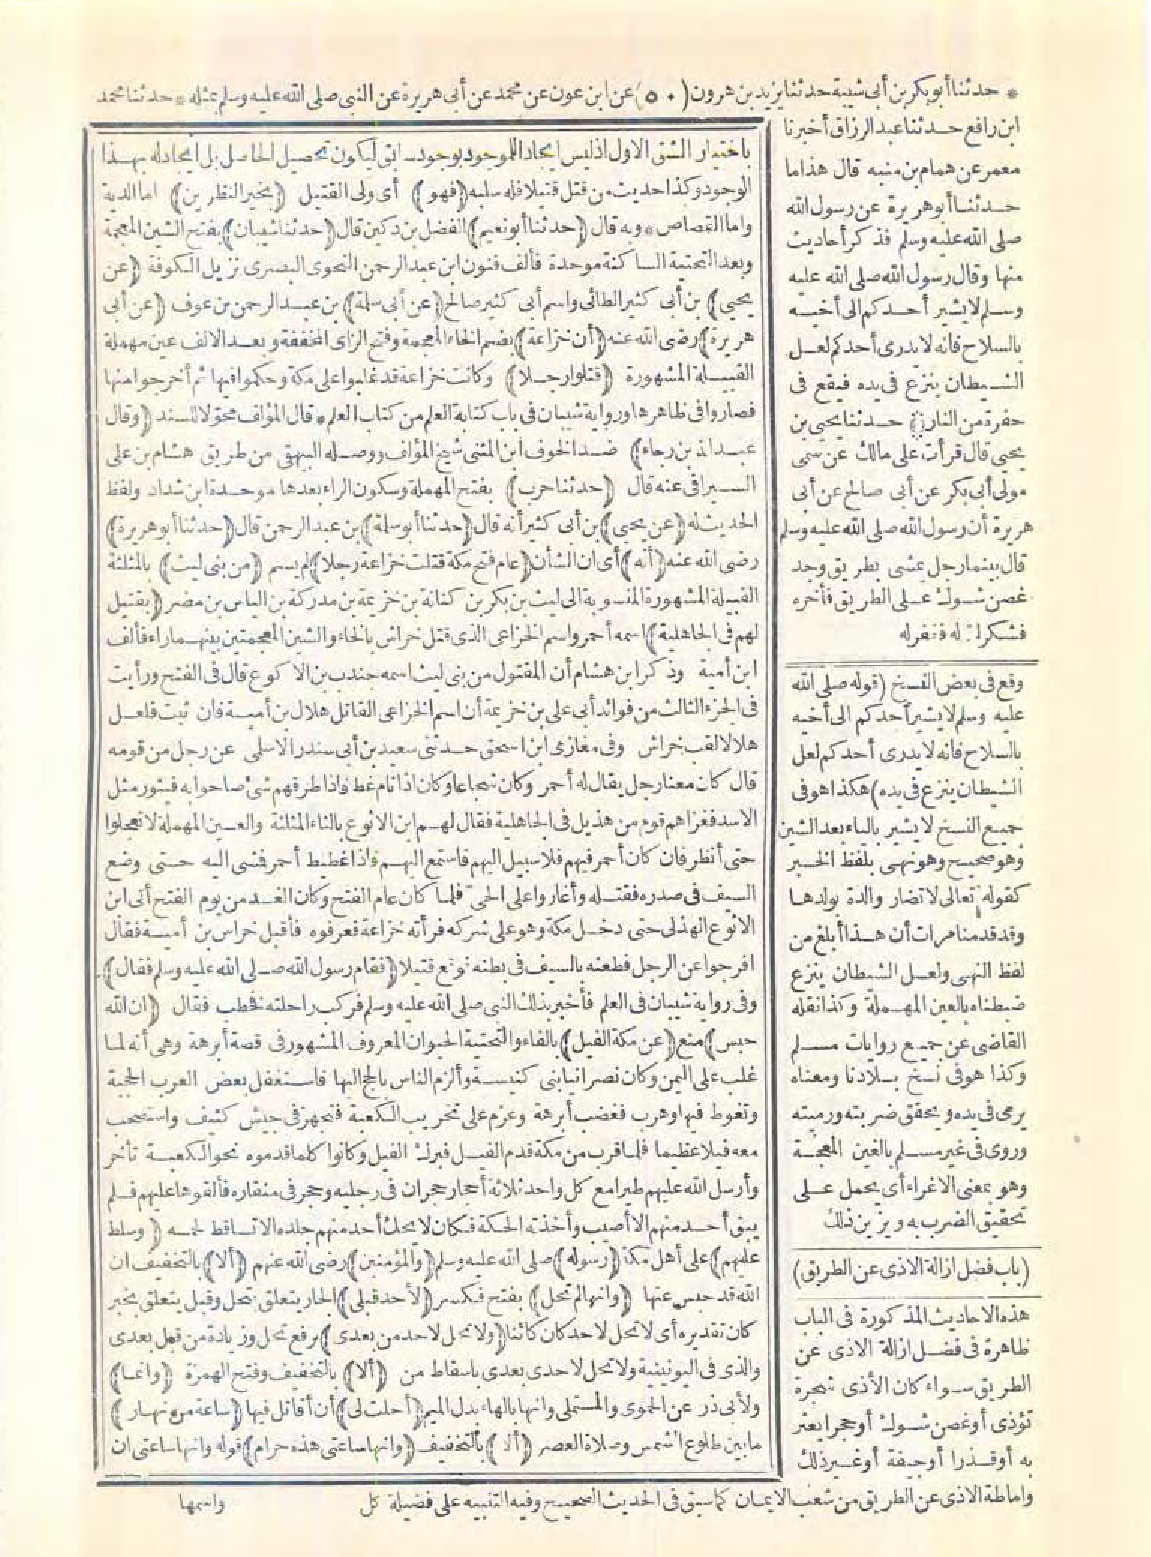 * حدثنا أبو بكر بن أبي شيبة حدثنا يزيد بن هرون (٥٠) عن ابن عون عن محمد عن أبي هريرة عن النبي صلى الله عليه وسلم بمثله * حدثنا محمد
ابن رافع حدثنا عبد الرزاق أخبرنا
معمر عن همام بن منبه قال هذا ما
حدثنا أبو هريرة عن رسول الله
صلى الله عليه وسلم فذكر أحاديث
منها وقال رسول الله صلى الله عليه
وسلم لا يشير أحدكم الى أخيه
بالسلاح فانه لا يدرى أحدكم لعل
الشيطان ينزع في يده فيقع فى
حفرة من النار حدثنا يحيى بن
يحيى قال قرأت على مالك عن سمى
مولى أبي بكر عن أبي صالح عن أبي
هريرة أن رسول الله صلى الله عليه وسلم
قال بينما رجل يمشى بطريق وجد
غصن شوك على الطريق فأخره
فشكر الله له فغفر له
وقع في بعض النسخ (قوله صلى الله
عليه وسلم لا يشير أحدكم الى أخيه
بالسلاح فانه لا يدرى أحدكم لعل
الشيطان ينزع في يده) هكذا هو فى
جميع النسخ لا يشير بالياء بعد الشين
وهو صحيح وهو نهى بلفظ الخبر
كقوله تعالى لا تضار والدة بولدها
وقد قدمنا مرات أن هذا أبلغ من
لفظ النهى ولعل الشيطان ينزع
ضبطناه بالعين المهملة وكذا نقله
القاضى عن جميع روايات مسلم
وكذا هو فى نسخ بلادنا ومعناه
يرمى فى يده ويحقق ضربته ورميته
وروى فى غير مسلم بالغين المعجمة
وهو بمعنى الاغراء أى يحمل على
تحقيق الضرب به ويزين ذلك
(باب فضل ازالة الاذى عن الطريق)
هذه الاحاديث المذكورة فى الباب
ظاهرة فى فضل ازالة الاذى عن
الطريق سواء كان الأذى شجرة
تؤذى أو غصن شوك أو حجرا يعثر
به أو قذرا أو جيفة أو غير ذلك
واماطة الاذى عن الطريق من شعب الايمان كما سبق فى الحديث الصحيح وفيه التنبيه على فضيلة كل
باختيار الشق الاول اذ ليس ايجاد الموجود بوجود سابق ليكون تحصيل الحاصل بل ايجاد له بهذا
الوجود وكذا حديث من قتل قتيلا فله سلبه (فهو) أى ولى القتيل (بخير النظرين) اما الدية
واما القصاص * وبه قال (حدثنا أبو نعيم) الفضل بن دكين قال (حدثنا شيبان) بفتح الشين المعجمة
وبعد التحتية الساكنة موحدة فألف فنون ابن عبد الرحمن النحوى البصرى نزيل الكوفة (عن
يحيى) بن أبي كثير الطائى واسم أبي كثير صالح (عن أبي سلة) بن عبد الرحمن بن عوف (عن أبي
هريرة) رضى الله عنه (أن خزاعة) بضم الخاء المعجمة وفتح الزاى المخففة وبعد الالف عين مهملة
القبيلة المشهورة (قتلوا رجلا) وكانت خزاعة قد غلبوا على مكة وحكموا فيها ثم أخرجوا منها
فصاروا فى ظاهرها ورواية شيبان فى باب كتابة العلم من كتاب العلم * قال المؤلف محولا للسند (وقال
عبد الله بن رجاء) ضد الخوف ابن المثنى شيخ المؤلف ووصله البيهقى من طريق هشام بن على
السيرافى عنه قال (حدثنا حرب) بفتح المهملة وسكون الراء بعدها موحدة ابن شداد ولفظ
الحديث له (عن يحيى) بن أبي كثير أنه قال (حدثنا أبو سلة) بن عبد الرحمن قال (حدثنا أبو هريرة)
رضى الله عنه (أنه) أى ان الشأن (عام فتح مكة قتلت خزاعة رجلا) لم يسم (من بنى ليث) بالمثلثة
القبيلة المشهورة المنسوبة الى ليث بن بكر بن كنانة بن خزيمة بن مدركة بن الياس بن مضر (بقتيل
لهم فى الجاهلية) اسمه أحمر واسم الخزاعى الذى قتل خراش بالخاء والشين المعجمتين بينهما راء فألف
ابن أمية وذكر ابن هشام أن المقتول من بنى ليث اسمه جندب بن الاكوع قال فى الفتح ورأيت
فى الجزء الثالث من فوائد أبي على بن خزيمة أن اسم الخزاعى القاتل هلال بن أمية فان ثبت فلعل
هلالا لقب خراش وفى مغازى ابن اسحق حدثنى سعيد بن أبي سندر الاسلمى عن رجل من قومه
قال كان معنا رجل يقال له أحمر وكان شجاعا وكان اذا نام غط فاذا طرقهم شئ صاحوا به فيثور مثل
الاسد فغزاهم قوم من هذيل فى الجاهلية فقال لهم ابن الاثوع بالثاء المثلثة والعين المهملة لا تعجلوا
حتى أنظر فان كان أحمر فيهم فلا سبيل اليهم فاستمع اليهم فاذا غطيط أحمر فمشى اليه حتى وضع
السيف فى صدره فقتله وأغاروا على الحى فلما كان عام الفتح وكان الغد من يوم الفتح أتى ابن
الاثوع الهذلى حتى دخل مكة وهو على شركه فرأته خزاعة فعرفوه فأقبل خراس بن أمية فقال
افرجوا عن الرجل فطعنه بالسيف فى بطنه فوقع قتيلا (فقام رسول الله صلى الله عليه وسلم فقال)
وفى رواية شيبان فى العلم فأخبر بذلك النبى صلى الله عليه وسلم فركب راحلته فخطب فقال (ان الله
حبس) منع (عن مكة الفيل) بالفاء والتحتية الحيوان المعروف المشهور فى قصة أبرهة وهى أنه لما
غلب على اليمن وكان نصرانيا بنى كنيسة وألزم الناس بالحج اليها فاستغفل بعض العرب الحجبة
وتغوط فيها وهرب فغضب أبرهة وعزم على تخريب الكعبة فتجهز فى جيش كثيف واستصحب
معه فيلا عظيما فلما قرب من مكة قدم الفيل فبرك الفيل وكانوا كلما قدموه نحو الكعبة تأخر
وأرسل الله عليهم طيرا مع كل واحد ثلاثة أحجار حجران فى رجليه وحجر فى منقاره فألقوها عليهم فلم
يبق أحد منهم الا أصيب وأخذته الحكة فكان لا يحك أحد منهم جلده الا تساقط لحمه (وسلط
عليهم) على أهل مكة (رسوله) صلى الله عليه وسلم (والمؤمنين) رضى الله عنهم (ألا) بالتخفيف ان
الله قد حبس عنها (وانها لم تحل) بفتح فكسر (لأحد قبلى) الجار يتعلق بتحل وقبلى يتعلق بخبر
كان تقديره أى لا تحل لاحد كان كائنا (ولا تحل لاحد من بعدى) برفع تحل وزيادة من قبل بعدى
والذى فى اليونينية ولا تحل لاحد بعدى باسقاط من (ألا) بالتخفيف وفتح الهمزة (وانما)
ولأبى ذر عن الحموى والمستملى وانها بالهاء بدل الميم (أحلت لى) أن أقاتل فيها (ساعة من نهار)
ما بين طلوع الشمس وصلاة العصر (ألا) بالتخفيف (وانها ساعتى هذه حرام) قوله وانها ساعتى ان
واسمها